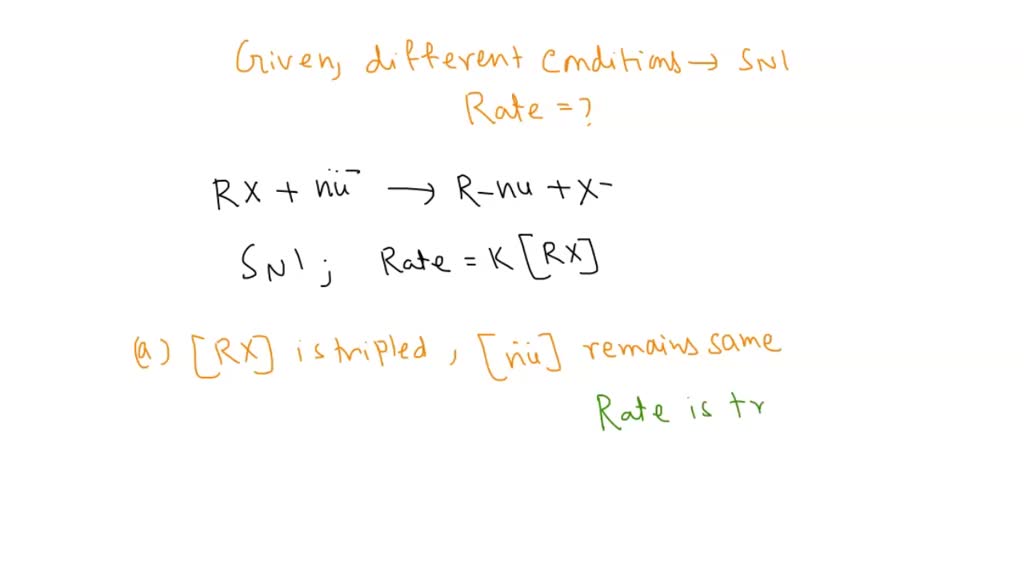 Given, different conditions → SN1
Rate = ?
RX + n̈ü⁻ → R-nu + X⁻
SN1; Rate = K [RX]
(a) [RX] is tripled, [n̈ü] remains same
Rate is tr